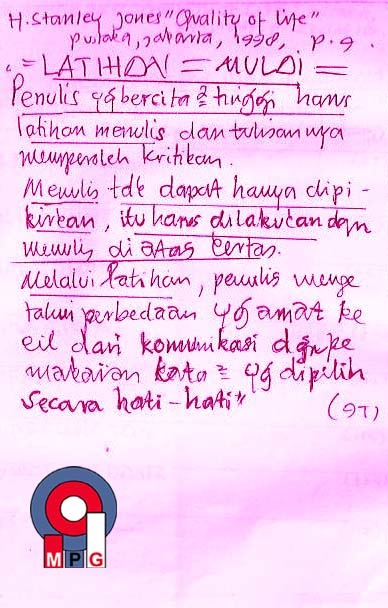 H. Stanley Jones "Quality of Life"
Pustaka, Jakarta, 1998, p. 9.
"= LATIHAN = MULAI =
Penulis yg bercita2 tinggi harus
latihan menulis dan tulisannya
memperoleh kritikan.
Menulis tdk dapat hanya dipi-
kirkan, itu harus dilakukan dgn
menulis di atas kertas.
Melalui latihan, penulis menge
tahui perbedaan yg amat ke
cil dari komunikasi dgn pe
makaian kata2 yg dipilih
secara hati-hati"
(9T)
MPG